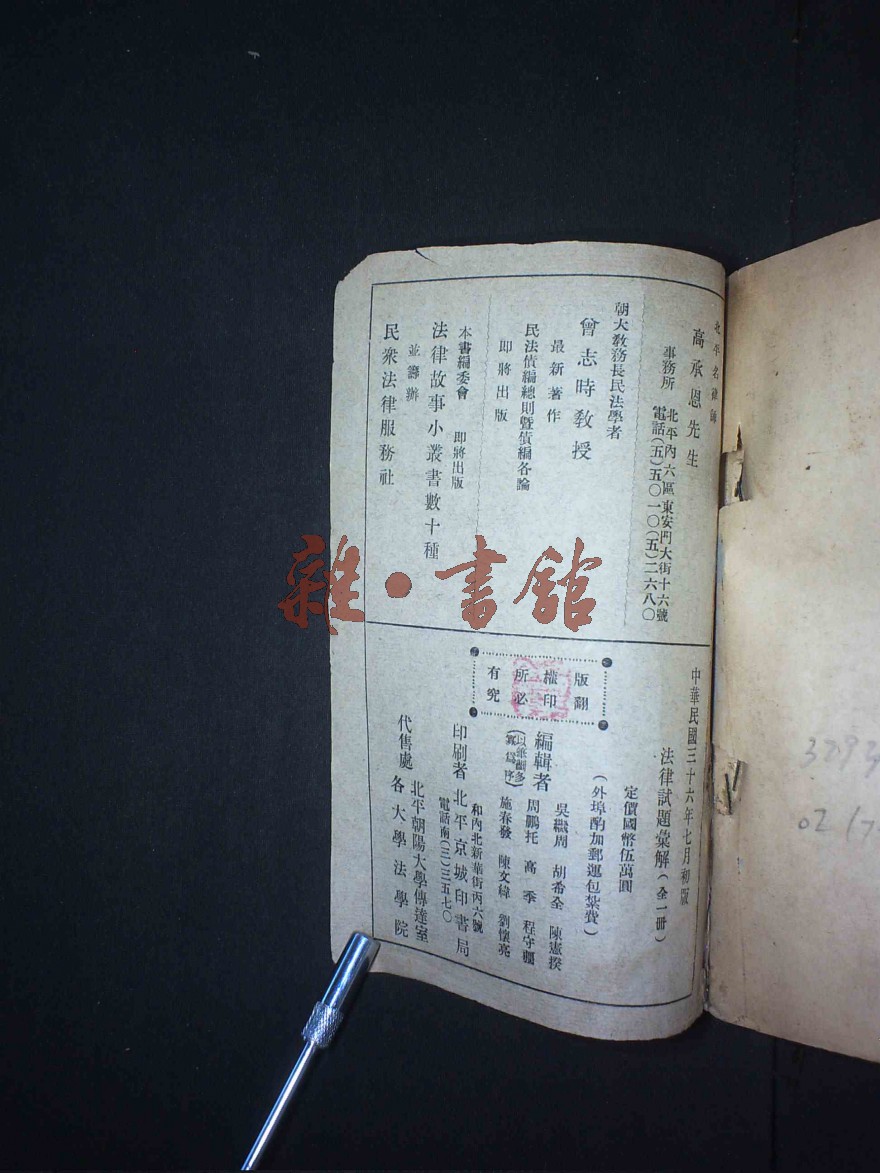 北平名律師
高承恩先生
事務所
北平內六區東安門大街十六號
電話(五)五〇一〇(五)二六八〇
朝大敎務長民法學者
曾志時敎授
最新著作
民法債編總則曁債編各論
即將出版
本書編委會
即將出版
法律故事小叢書數十種
並籌辦
民衆法律服務社
中華民國三十六年七月初版
法律試題彙解(全一冊)
定價國幣伍萬圓
(外埠酌加郵運包紮費)
編輯者
吳繼周 胡希全 陳憲揆
周鵬托 高季 程守疆
施春發 陳文緯 劉懷亮
印刷者 北平京城印書局
和內北新華街丙六號
電話南(三)三五七〇
代售處
北平朝陽大學傳達室
各大學法學院
版權所有
翻印必究
雜·書館